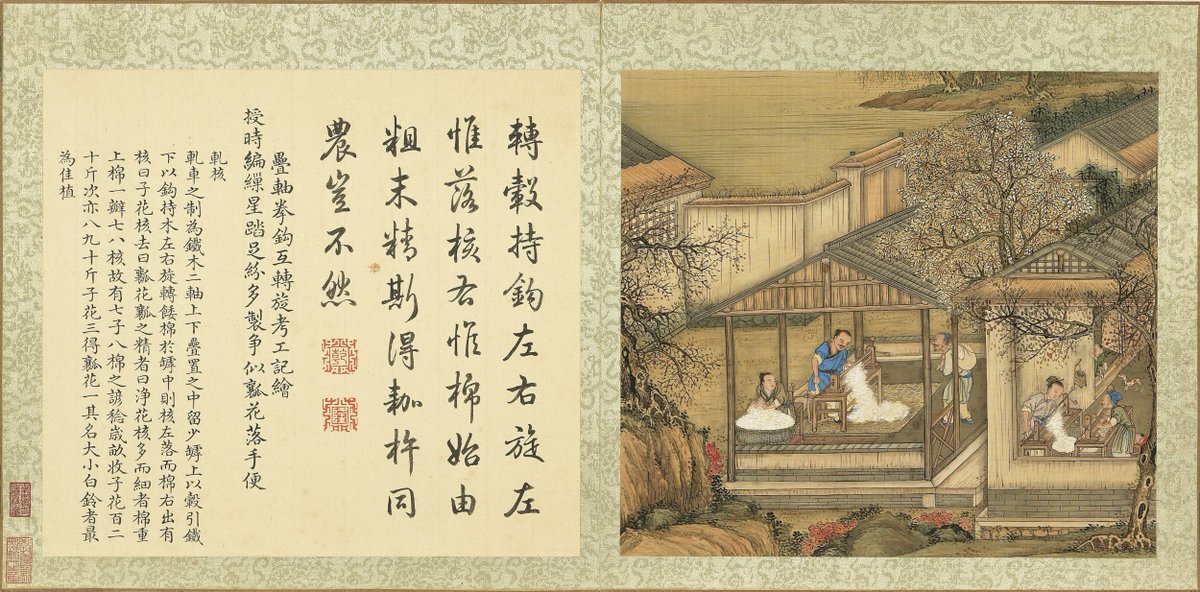 轉轂持鉤左右旋左
惟落核右惟棉始由
粗末精斯得耞杵同
農豈不然
疊軸拳鈎互轉旋考工記繪
授時編繅星踏足紛多製爭似瓤花落手便
軋核
軋車之制為鐵木二軸上下疊置之中留少罅上以轂引鐵
下以鈎持木左右旋轉餧棉於罅中則核左落而棉右出有
核曰子花核去曰瓤花瓤之精者曰浄花核多而細者棉重
上棉一瓣七八核故有七子八棉之諺稔歲畝收子花百二
十斤次亦八九十斤子花三得瓤花一其名大小白鈴者最
為佳植